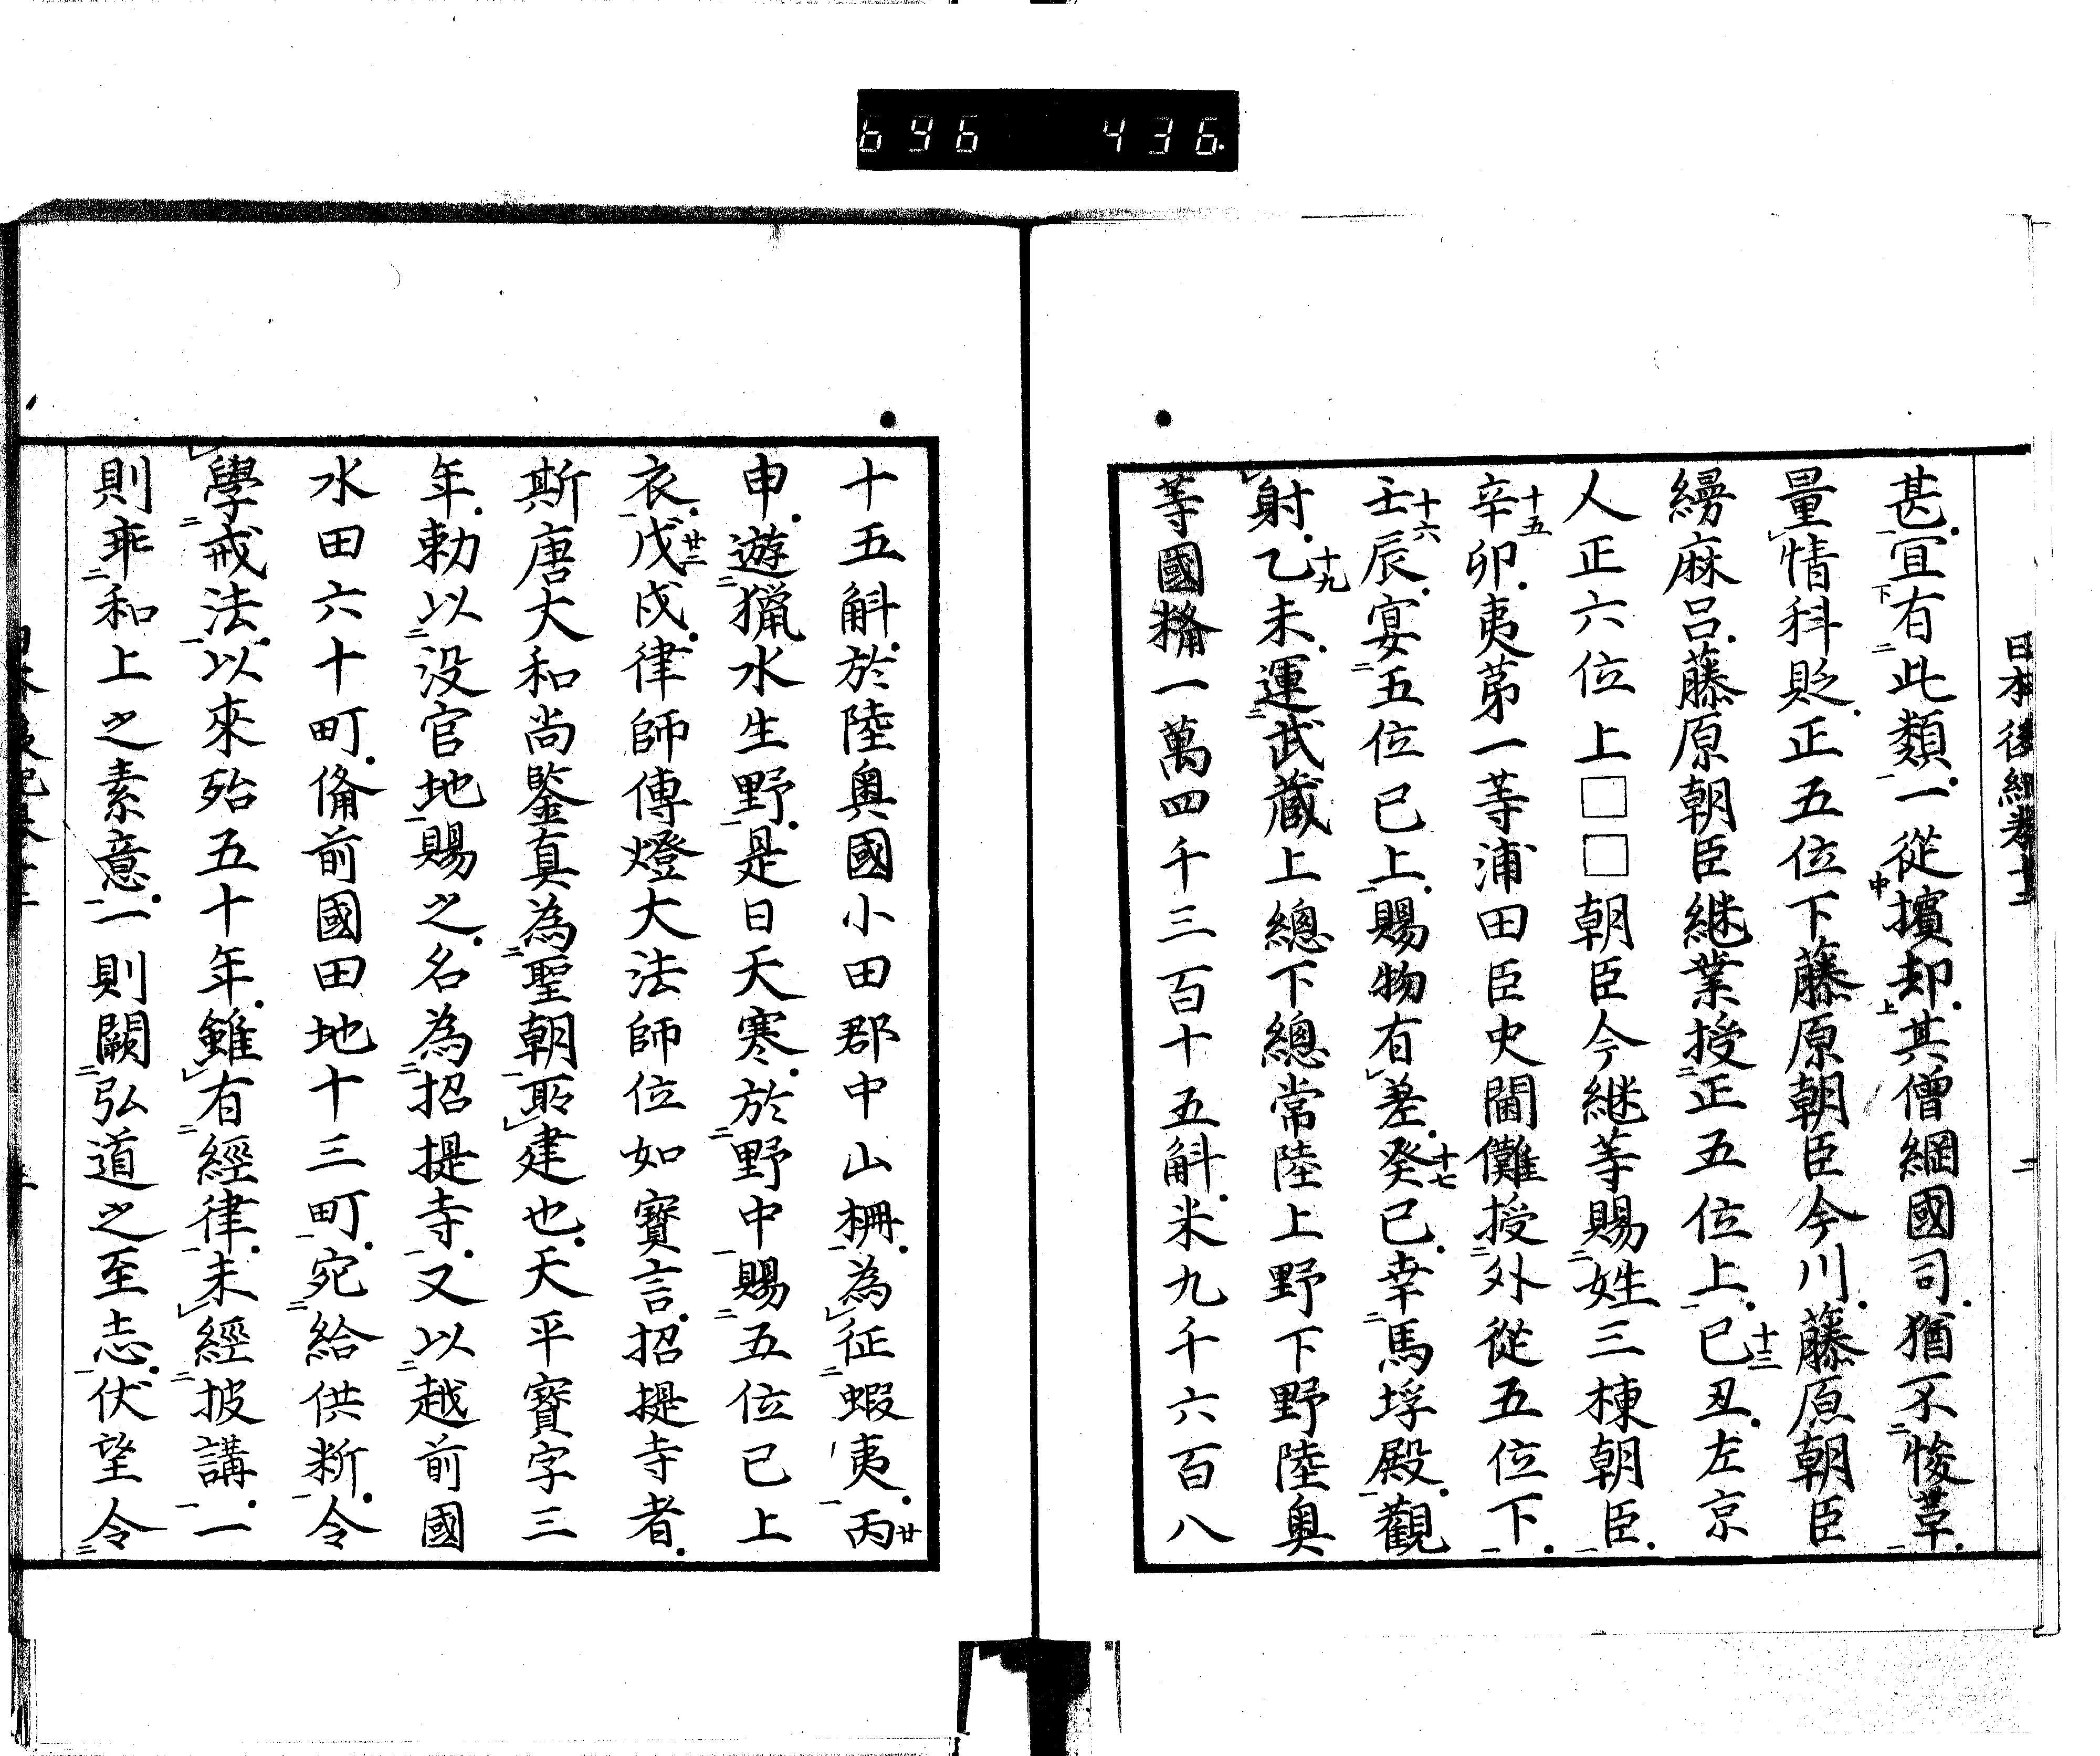 696 436
日本後紀卷十二 一
甚宜有此類一從擯却其僧綱國司猶不悛革
量情科貶正五位下藤原朝臣今川藤原朝臣
縵麻呂藤原朝臣継業授正五位上己丑左京
十三
人正六位上□□朝臣今継等賜姓三棟朝臣
辛卯夷第一等浦田臣史閫儺授外從五位下
十五
壬辰宴五位已上賜物有差癸巳幸馬埒殿觀
十六
十七
射乙未運武蔵上總下總常陸上野下野陸奥
十九
等國糒一萬四千三百十五斛米九千六百八
十五斛於陸奥國小田郡中山柵為征蝦夷丙
廿
申遊獵水生野是日天寒於野中賜五位已上
衣戊戌律師傳燈大法師位如寳言招提寺者
廿二
斯唐大和尚鑒真為聖朝所建也天平寳字三
年勅以没官地賜之名為招提寺又以越前國
水田六十町備前國田地十三町宛給供断令
學戒法以來殆五十年雖有經律未經披講一
則乖和上之素意一則闕弘道之至志伏望令